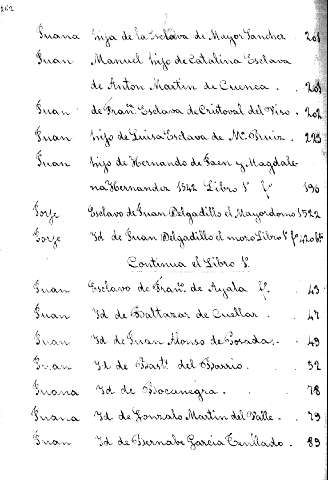 Juana hija de la Esclava de Mayor Sanchez 201
Juan Manuel hijo de Catalina Esclava
de Anton Martin de Cuenca . 201
Juan de Franca. Esclava de Cristoval del Viso . 202
Juan hijo de Luisa Esclava de Ma. Ruiz . 293
Juan hijo de Hernando de Jaen y Magdale-
na Hernandez 1542 Libro 1º fº 196
Jorje Esclavo de Juan Delgadillo el Mayordomo 1522
Jorje Id de Juan Delgadillo el mozo Libro 1º fº 420bto
Continua el Libro 1º
Juan Esclavo de Franco. de Ayala fº . 43
Juan Id de Baltazar de Cuellar . 47
Juan Id de Juan Alonso de Posadas . 49
Juan Id de Barte. del Barrio . 52
Juana Id de Bocanegra . 78
Juana Id de Gonzalo Martin del Valle . 79
Juan Id de Bernabe Garcia . 89